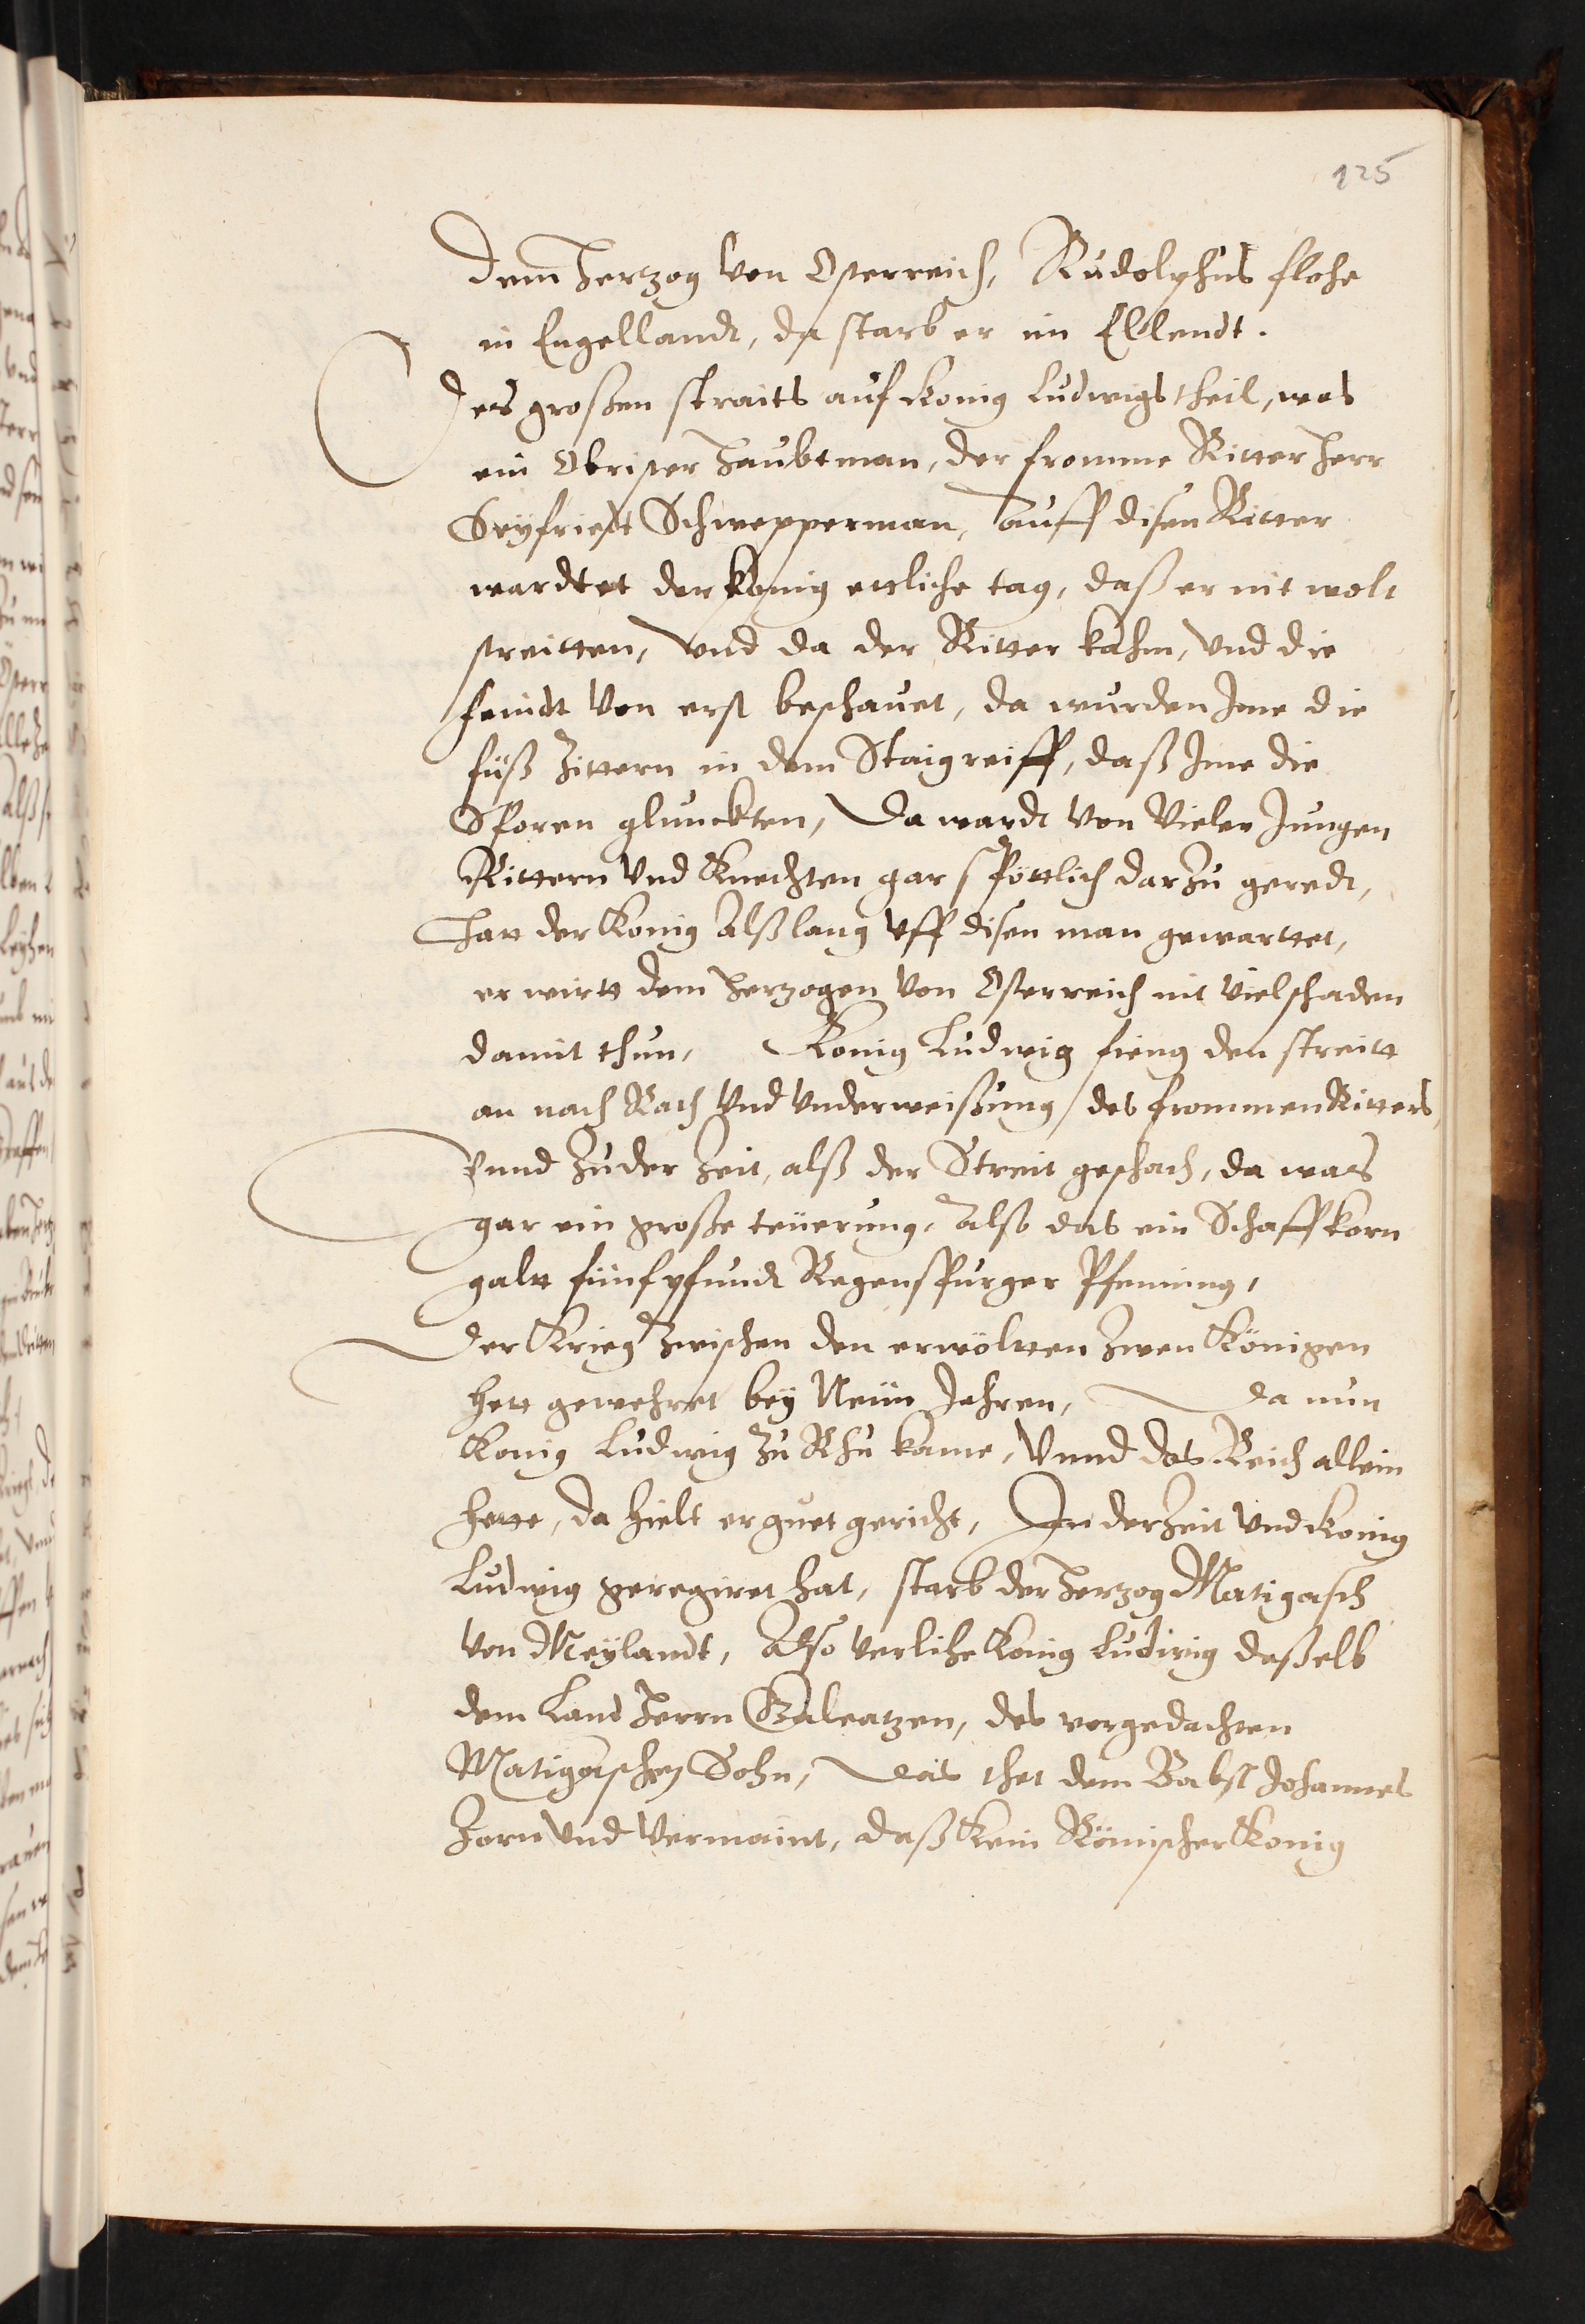 125
dem Hertzog von Osterreich, Rudolphus flohe
in Engellandt, da starb er im Ellendt.
Des großen straits auf König Ludwigs theil, was
ein Obrister Haubtman, der fromme Ritter Herr
Seyfriedt Schwepperman, Auff disen Ritter
wardtet der König ettliche tag, daß er nit wolt
streitten, Und da der Ritter kahm, Und die
feindt Von erst beschauet, da wurden Ime die
füß Zittern in dem Staigreiff, daß Ime die
Sporen glunckten, Da wardt Von Vielen Jungen
Rittern Und Knechten gar spöttlich darzu geredt,
Hatt der König Alß lang Uff disen man gewarttet,
er wirtt dem Hertzogen Von Osterreich nit Viel schaden
damit thun, König Ludwig fieng den streitt
an nach Rath Und Underweißung des frommen Ritters,
Unnd zu der Zeit, alß der Streit geschach, da was
gar ein große teüerung, Also das ein Schaff korn
galtt fünf pfundt Regenspurger Pfenning,
Der Krieg Zwischen den erwöltten Zwen Königen
hett gewehret bey Neün Jahren, Da nun
König Ludwig Zu Rhu kame, Unnd das Reich allein
hette, da hielt er guet gericht, In der Zeit Und König
Ludwig geregiret hat, starb der Hertzog Matigasch
Von Meylandt, Also Verlihe König Ludwig daßelb
dem Land Herrn Galeatzen, des vorgedachten
Matigaschen Sohn, Das thet dem Babst Johannes
Zorn Und Vermaint, daß Kein Römischer König